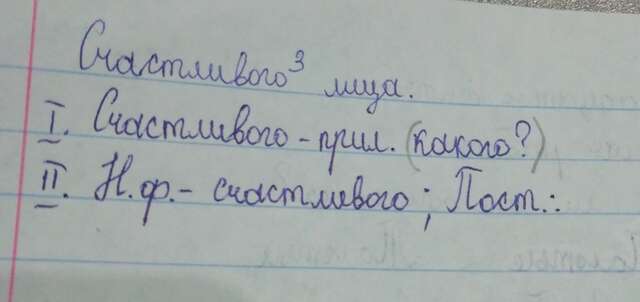 Счастливого³ лица.
I. Счастливого - прил. (какого?)
II. Н.ф. - счастливого; Пост.: